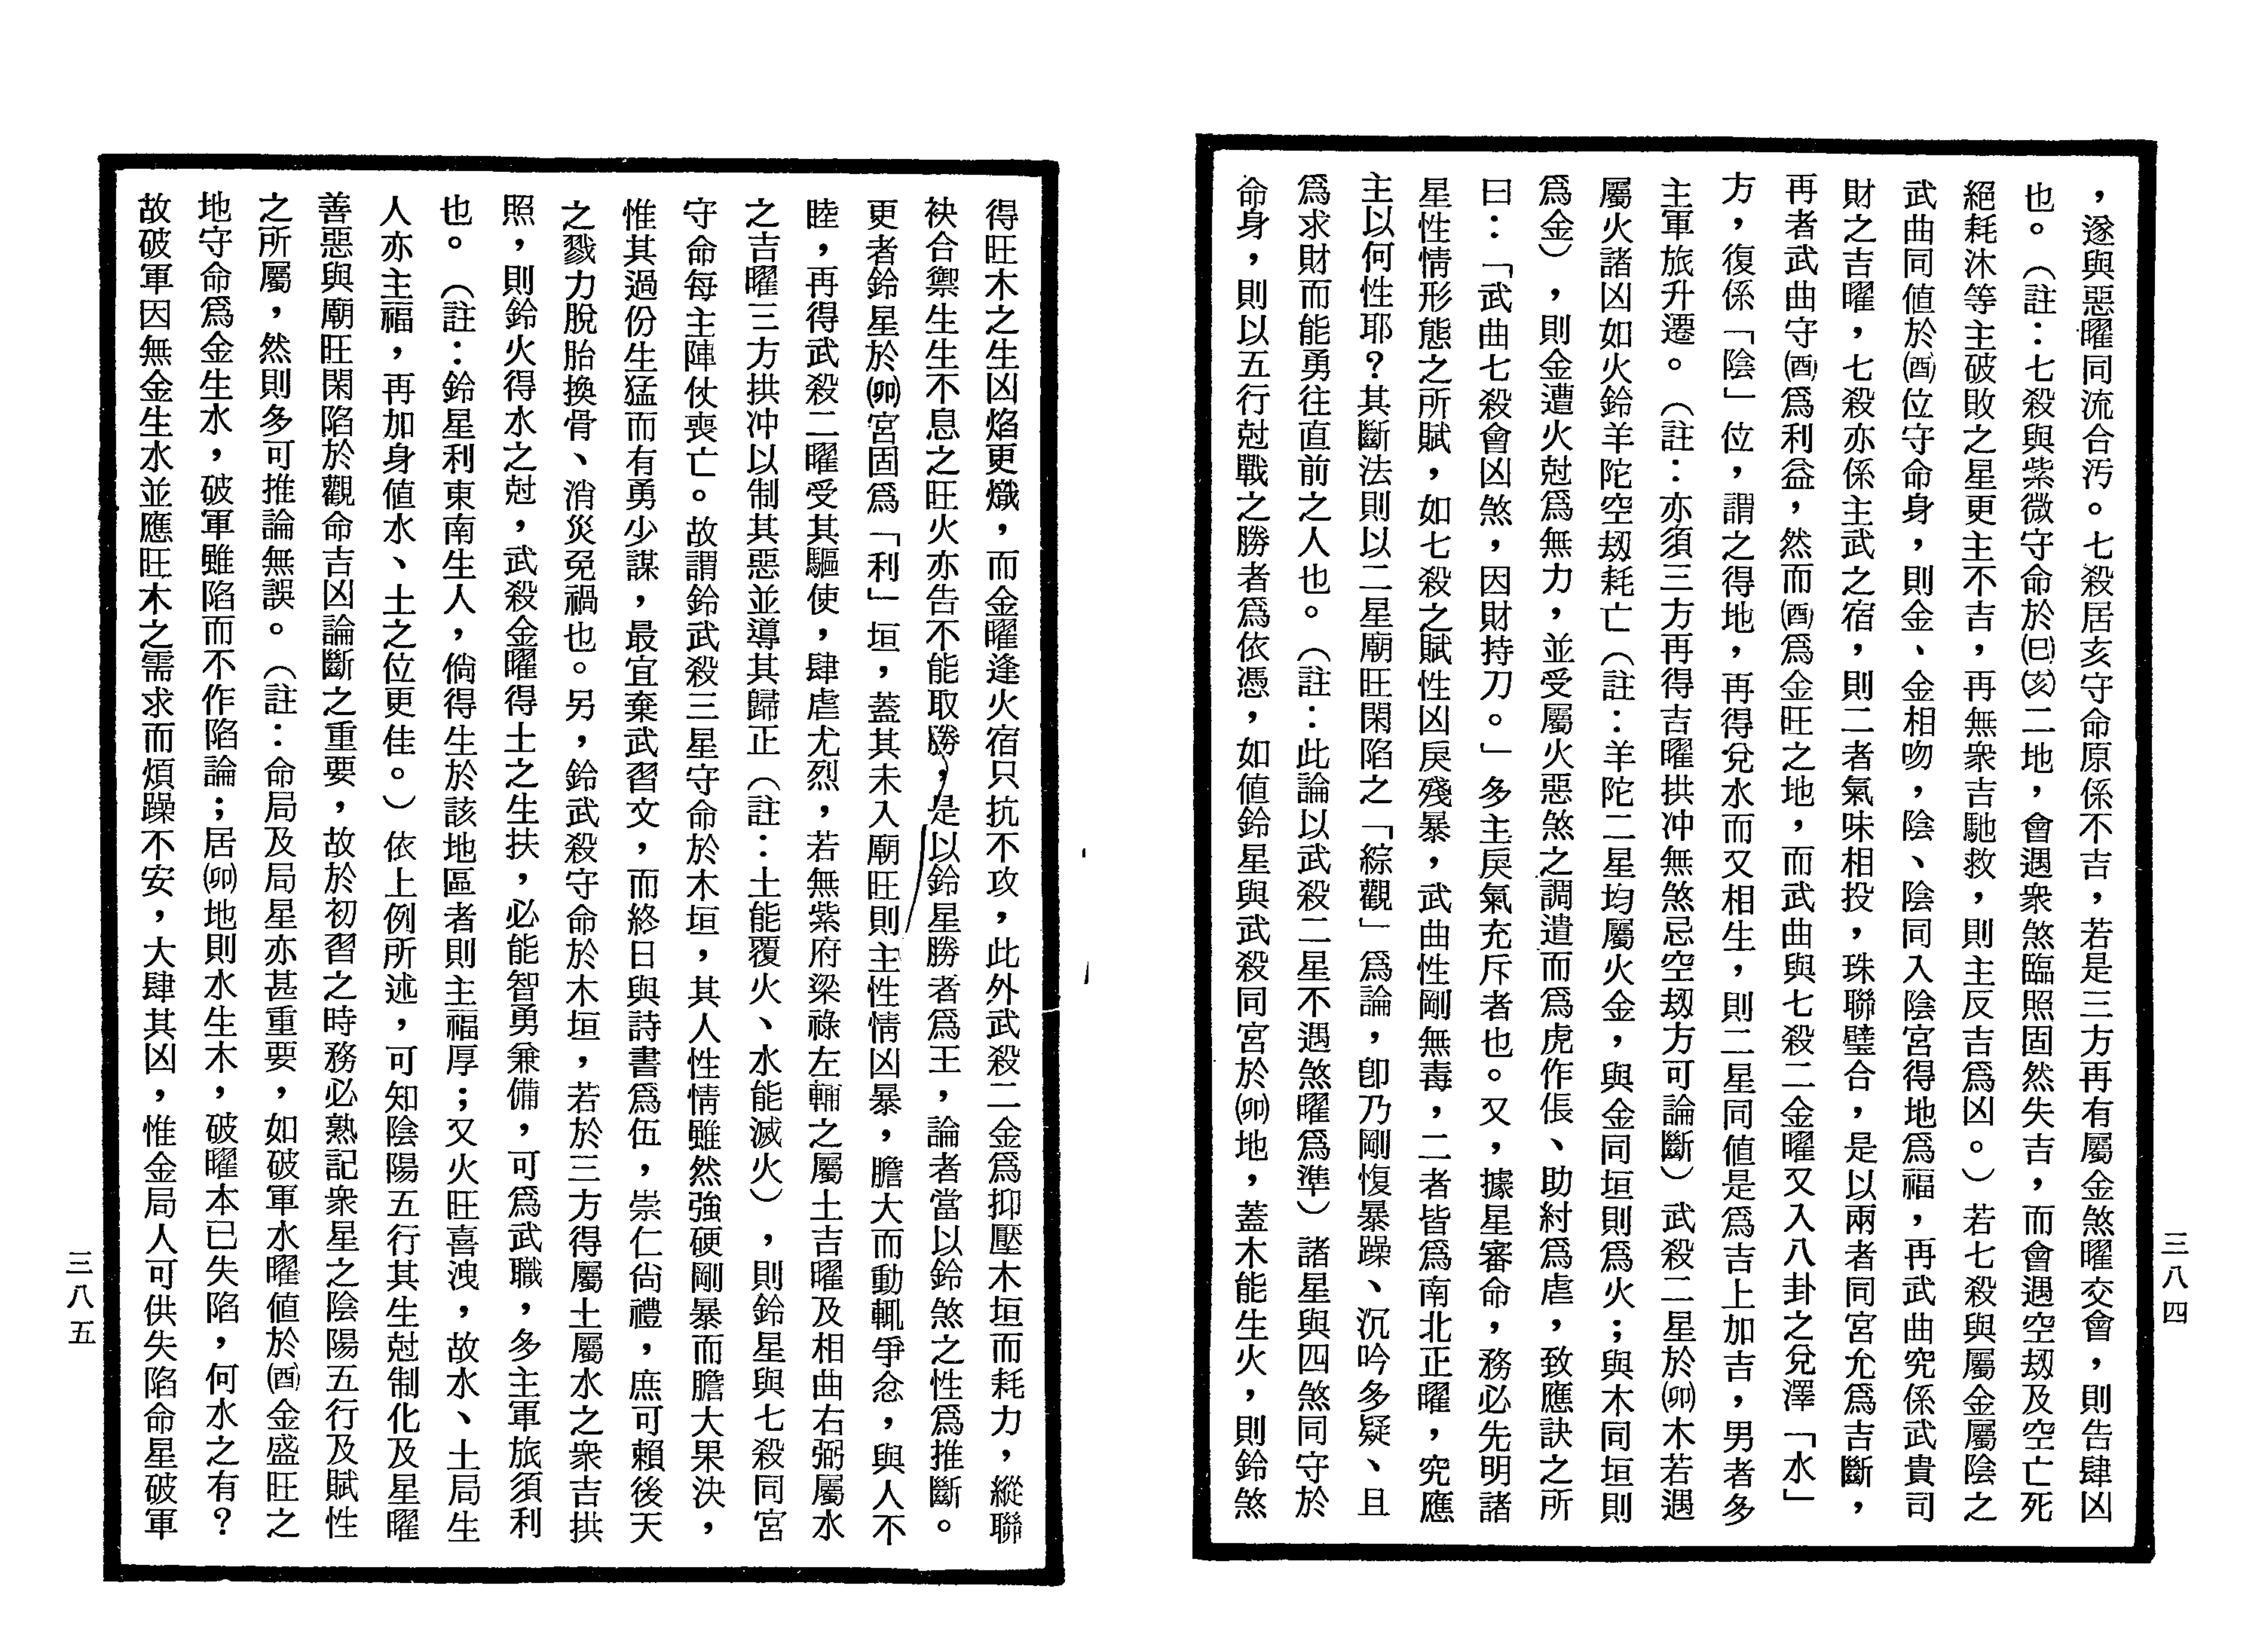 ，遂與惡曜同流合污。七殺居亥守命原係不吉，若是三方再有屬金煞曜交會，則告肆凶
也。（註：七殺與紫微守命於㈣㈥二地，會遇衆煞臨照固然失吉，而會遇空刼及空亡死
絕耗沐等主破敗之星更主不吉，再無衆吉馳救，則主反吉爲凶。）若七殺與屬金屬陰之
武曲同値於(酉)位守命身，則金、金相吻，陰、陰同入陰宮得地爲福，再武曲究係武貴司
財之吉曜，七殺亦係主武之宿，則二者氣味相投，珠聯璧合，是以兩者同宮允爲吉斷，
再者武曲守(酉)爲利益，然而(酉)爲金旺之地，而武曲與七殺二金曜又入八卦之兌澤「水」
方，復係「陰」位，謂之得地，再得兌水而又相生，則二星同値是爲吉上加吉，男者多
主軍旅升遷。（註：亦須三方再得吉曜拱冲無煞忌空刼方可論斷）武殺二星於(卯)木若遇
屬火諸凶如火鈴羊陀空刼耗亡（註：羊陀二星均屬火金，與金同垣則爲火；與木同垣則
爲金），則金遭火尅爲無力，並受屬火惡煞之調遣而爲虎作倀、助紂爲虐，致應訣之所
曰：「武曲七殺會凶煞，因財持刀。」多主戾氣充斥者也。又，據星審命，務必先明諸
星性情形態之所賦，如七殺之賦性凶戾殘暴，武曲性剛無毒，二者皆爲南北正曜，究應
主以何性耶？其斷法則以二星廟旺閑陷之「綜觀」爲論，卽乃剛愎暴躁、沉吟多疑、且
爲求財而能勇往直前之人也。（註：此論以武殺二星不遇煞曜爲準）諸星與四煞同守於
命身，則以五行尅戰之勝者爲依憑，如値鈴星與武殺同宮於(卯)地，蓋木能生火，則鈴煞
三八四
得旺木之生凶焰更熾，而金曜逢火宿只抗不攻，此外武殺二金爲抑壓木垣而耗力，縱聯
袂合禦生生不息之旺火亦告不能取勝，是以鈴星勝者爲王，論者當以鈴煞之性爲推斷。
更者鈴星於(卯)宮固爲「利」垣，蓋其未入廟旺則主性情凶暴，膽大而動輒爭忿，與人不
睦，再得武殺二曜受其驅使，肆虐尤烈，若無紫府梁祿左輔之屬土吉曜及相曲右弼屬水
之吉曜三方拱冲以制其惡並導其歸正（註：土能覆火、水能滅火），則鈴星與七殺同宮
守命每主陣仗喪亡。故謂鈴武殺三星守命於木垣，其人性情雖然強硬剛暴而膽大果決，
惟其過份生猛而有勇少謀，最宜棄武習文，而終日與詩書爲伍，崇仁尙禮，庶可賴後天
之戮力脫胎換骨、消災免禍也。另，鈴武殺守命於木垣，若於三方得屬土屬水之衆吉拱
照，則鈴火得水之尅，武殺金曜得土之生扶，必能智勇兼備，可爲武職，多主軍旅須利
也。（註：鈴星利東南生人，倘得生於該地區者則主福厚；又火旺喜洩，故水、土局生
人亦主福，再加身値水、土之位更佳。）依上例所述，可知陰陽五行其生尅制化及星曜
善惡與廟旺閑陷於觀命吉凶論斷之重要，故於初習之時務必熟記衆星之陰陽五行及賦性
之所屬，然則多可推論無誤。（註：命局及局星亦甚重要，如破軍水曜値於(酉)金盛旺之
地守命爲金生水，破軍雖陷而不作陷論；居(卯)地則水生木，破曜本已失陷，何水之有？
故破軍因無金生水並應旺木之需求而煩躁不安，大肆其凶，惟金局人可供失陷命星破軍
三八五